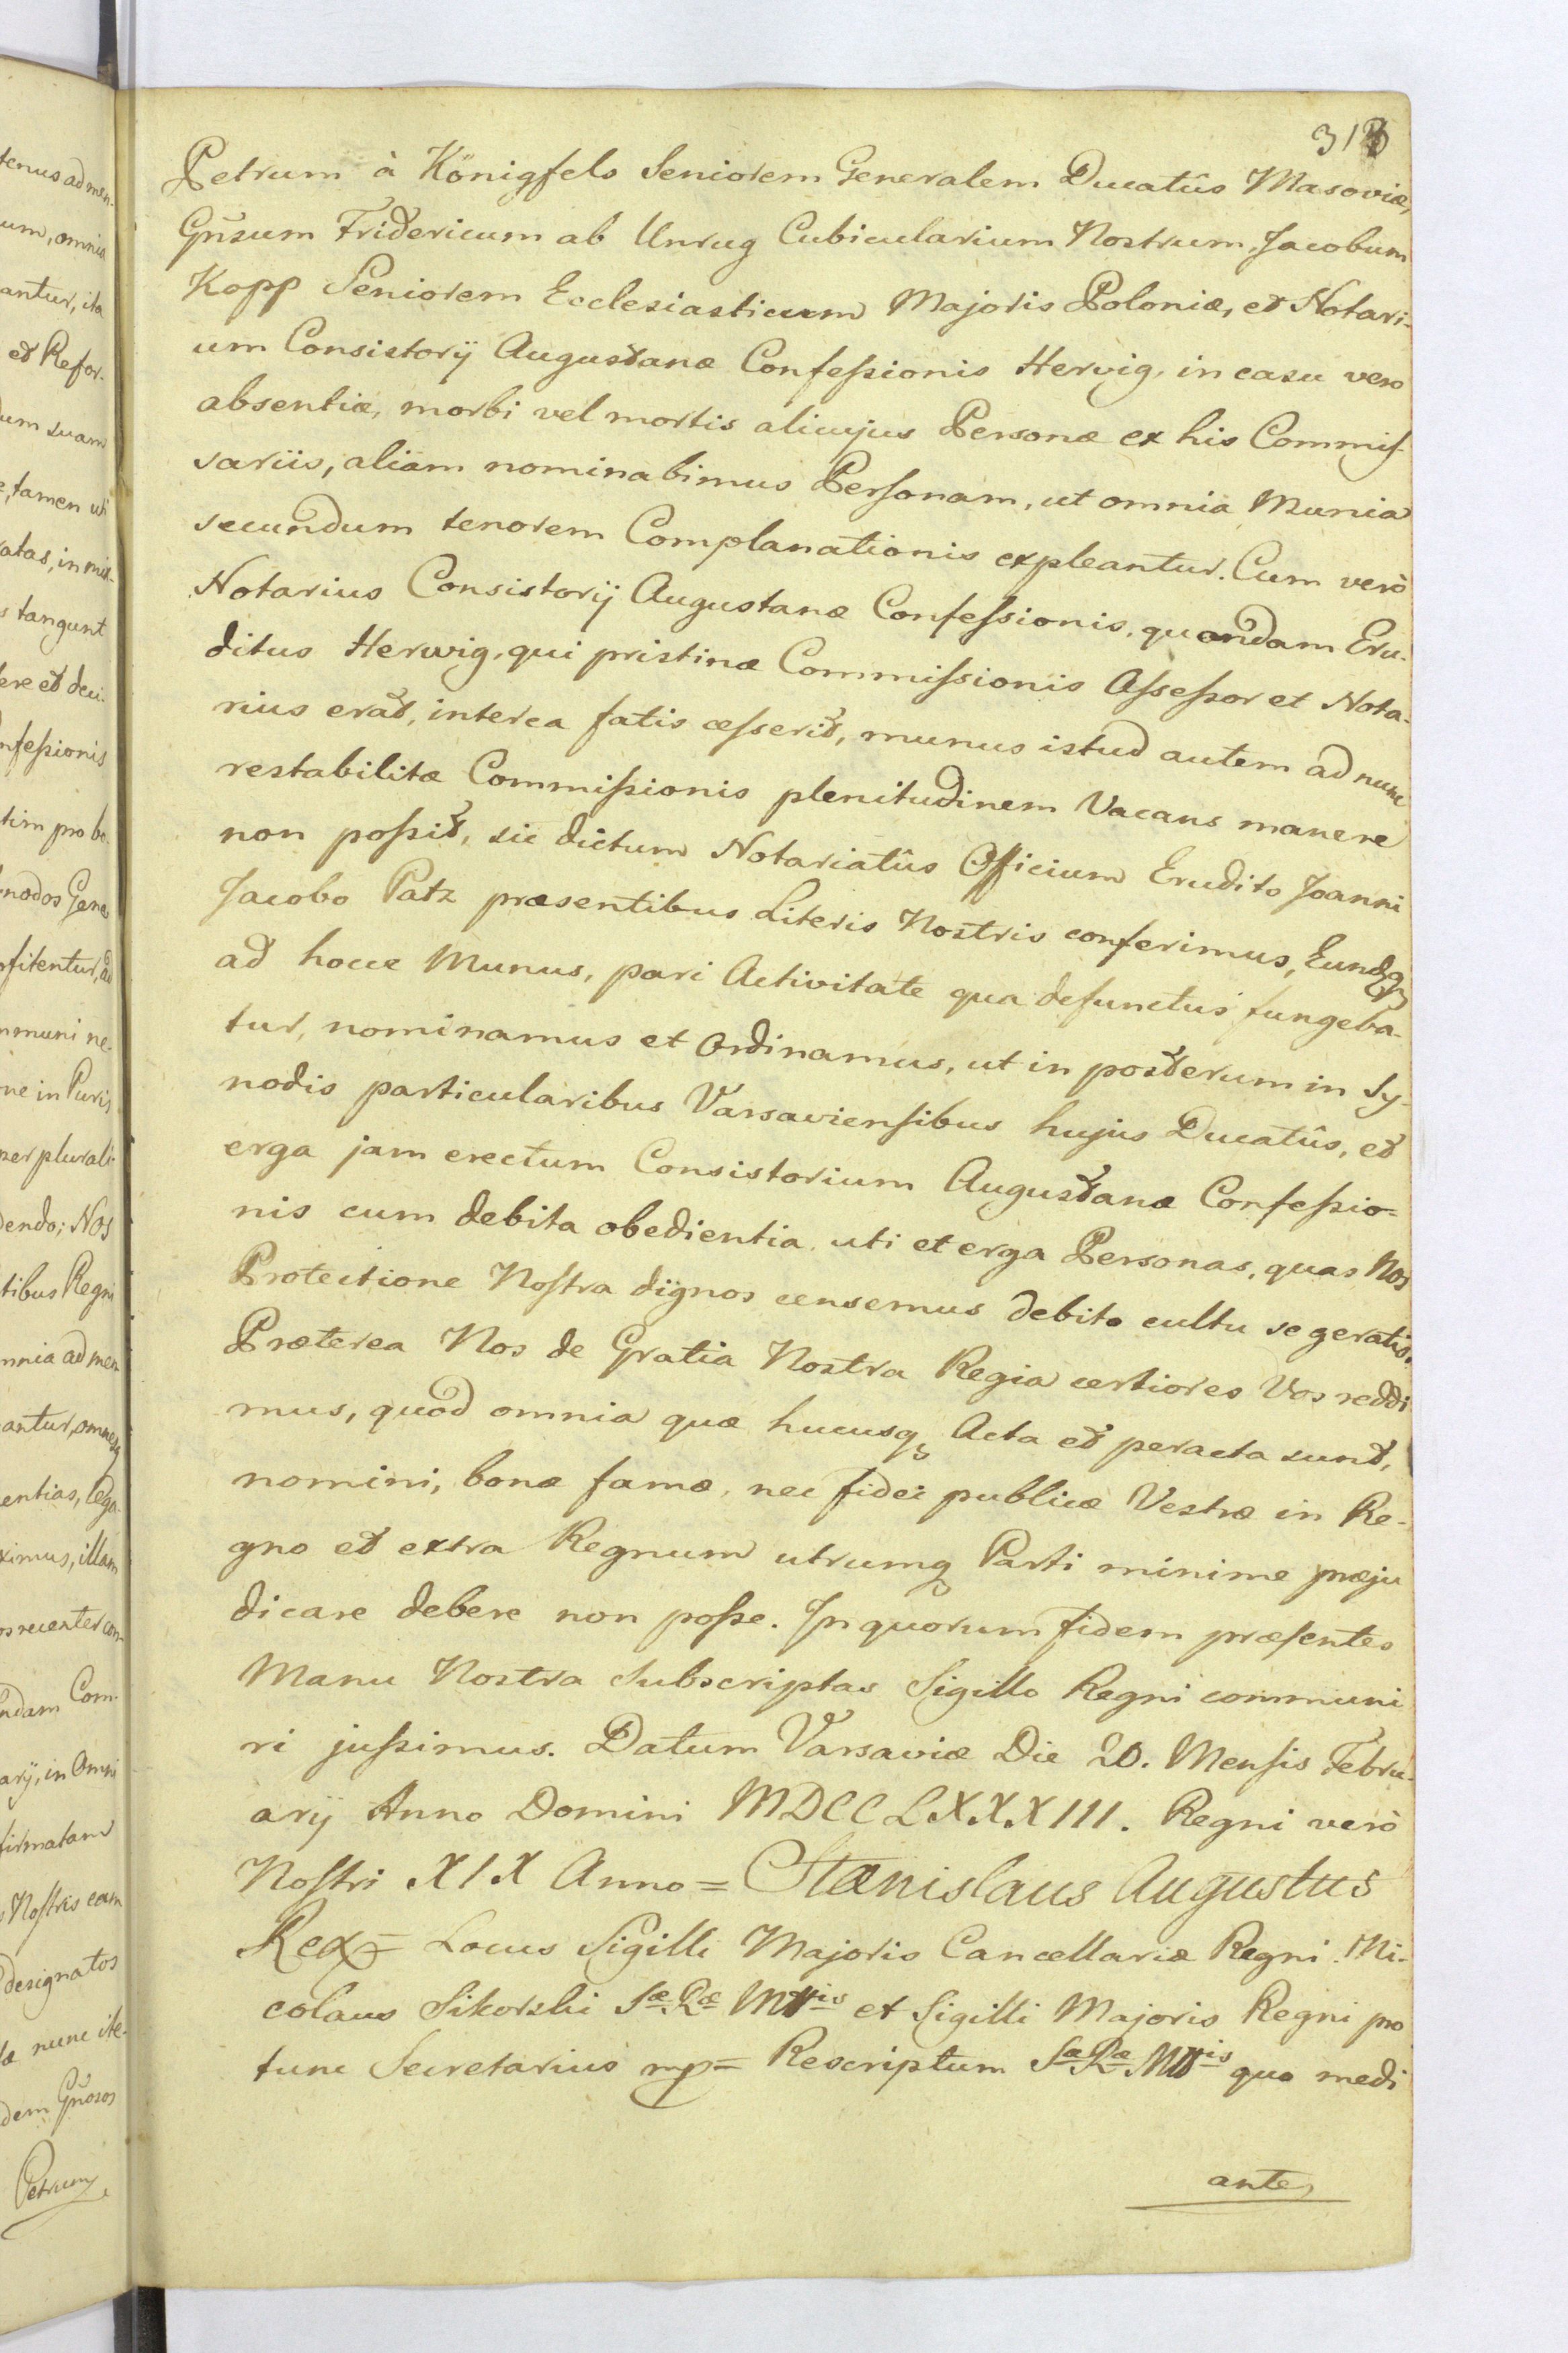 313
Petrum à Königfels Seniorem Generalem Ducatûs Masoviæ,
Gñsum Fridericum ab Unrug Cubicularium Nostrum, Jacobum
Kopp Seniorem Ecclesiasticum Majoris Poloniæ, et Notari-
um Consistorÿ Augustanæ Confeſsionis Hervig, in casu vero
absentiæ, morbi vel mortis alicujus Personæ ex his Commiſ-
sariis, aliam nominabimus Perſonam, ut omnia Munia
secundum tenorem Complanationis expleantur. Cum verò
Notarius Consistorÿ Augustanæ Confeſsionis, quondam Eru-
ditus Herwig, qui pristinæ Commiſsionis Aſseſsor et Nota-
rius erat, interea fatis ceſserit, munus istud autem ad nunc
restabilitæ Commiſsionis plenitudinem Vacans manere
non poſsit, sic dictum Notariatûs Officium Erudito Joanni
Jacobo Patz præsentibus Literis Nostris conferimus, Eundq
ad hocce Munus, pari Activitate qua defunctus fungeba-
tur, nominamus et Ordinamus, ut in posterum in Sy-
nodis particularibus Varsavienſibus hujus Ducatûs, et
erga jam erectum Consistorium Augustanæ Confeſsio-
nis cum debita obedientia, uti et erga Personas, quas Nos
Protectione Noſtra dignos censemus debito cultu se geratis.
Præterea Nos de Gratia Nostra Regia certiores Vos reddi
mus, quod omnia quæ hucusq Acta et peracta sunt,
nomini, bonæ famæ, nec fidei publicæ Vestræ in Re-
gno et extra Regnum utrumq Parti minime præju
dicare debere non poſse. In quorum fidem præſentes
Manu Nostra Subscriptas Sigillo Regni communi
ri juſsimus. Datum Varsaviæ Die 20. Menſis Febru-
arÿ Anno Domini MDCCLXXXIII. Regni verò
Noſtri XIX Anno = Stanislaus Augustus
Rex = Locus Sigilli Majoris Cancellariæ Regni. Ni-
colaus Sikorski Sæ Ræ Mttis et Sigilli Majoris Regni pro
tunc Secretarius mp = Rescriptum Sæ Ræ Mttis quo medi
ante